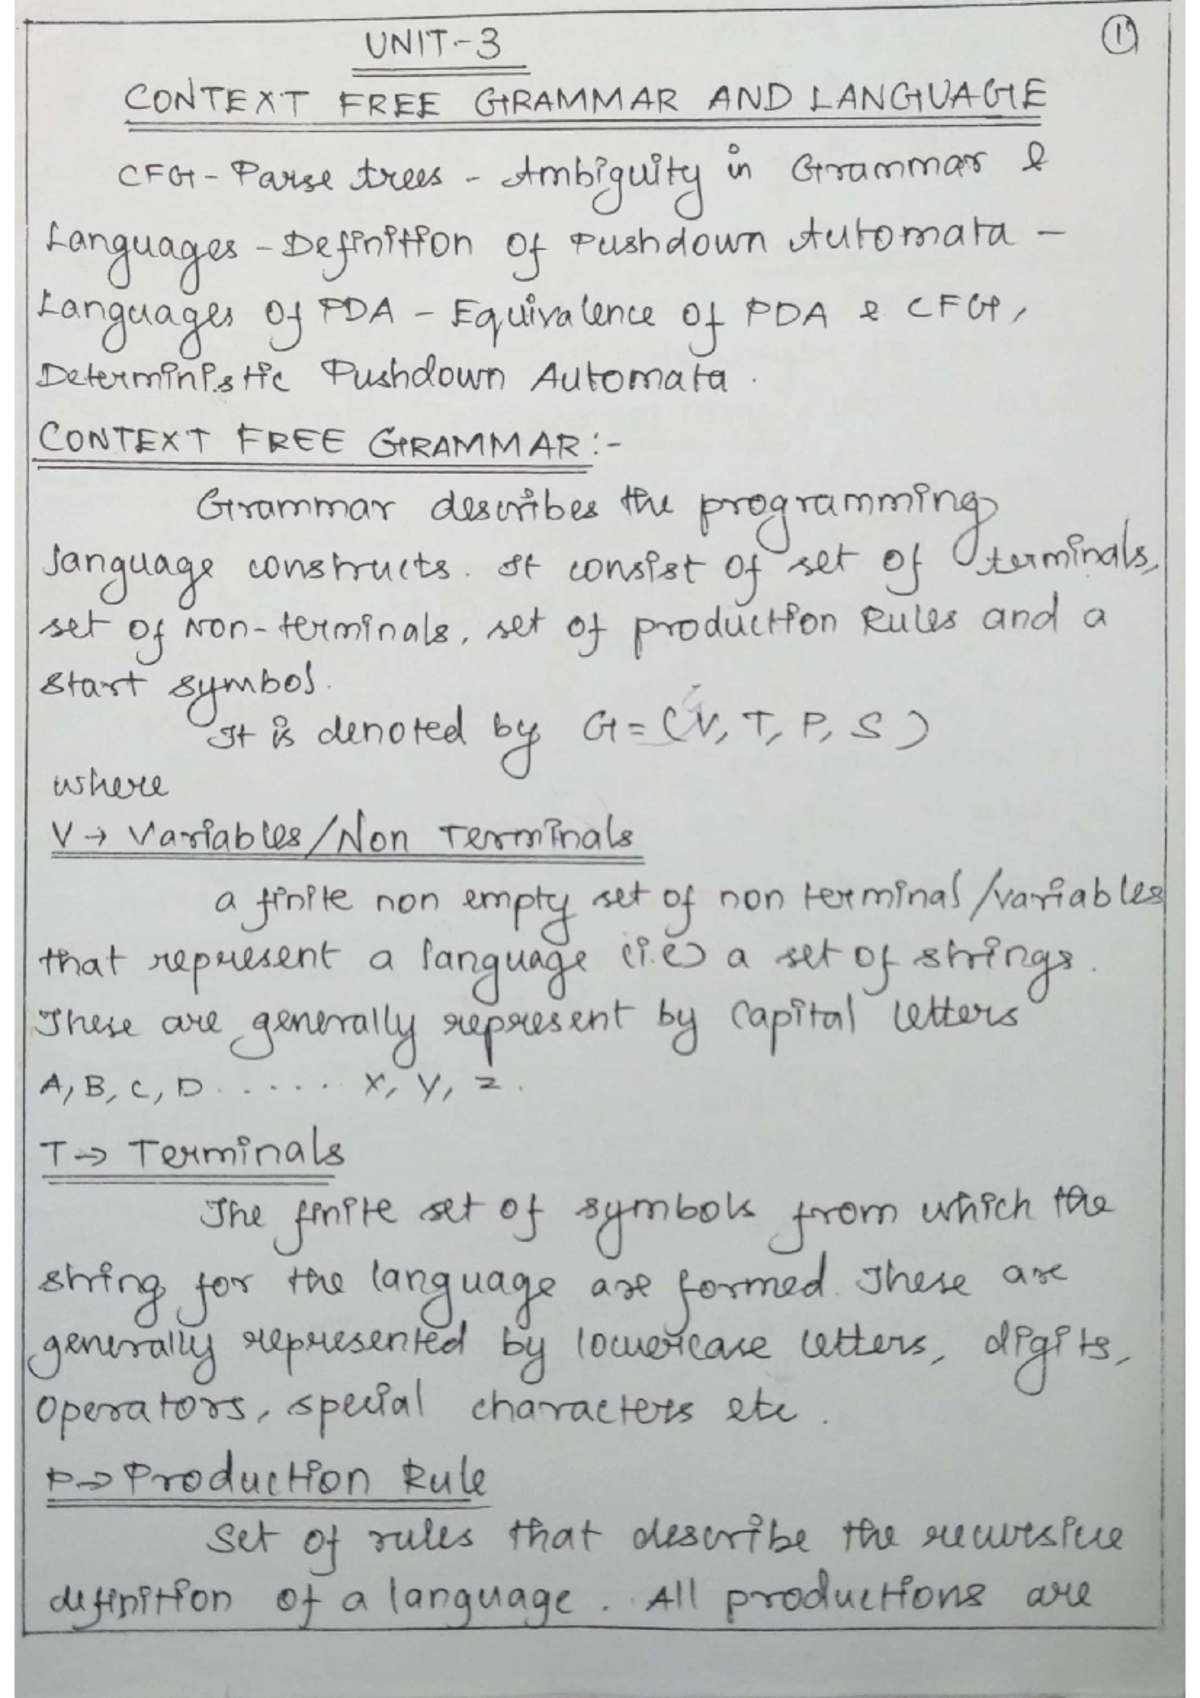 UNIT-3
1
CONTEXT FREE GRAMMAR AND LANGUAGE
CFG - Parse trees - Ambiguity in Grammar &
Languages - Definition of Pushdown Automata -
Languages of PDA - Equivalence of PDA & CFG,
Deterministic Pushdown Automata.
CONTEXT FREE GRAMMAR:-
Grammar describes the programming
language constructs. It consist of set of terminals,
set of Non-terminals, set of production Rules and a
start symbol.
It is denoted by G = (V, T, P, S)
where
V → Variables/Non Terminals
a finite non empty set of non terminal/variables
that represent a language (i.e) a set of strings.
These are generally represent by capital letters
A, B, C, D ...... X, Y, Z.
T → Terminals
The finite set of symbols from which the
string for the language are formed. These are
generally represented by lowercase letters, digits,
operators, special characters etc.
P → Production Rule
Set of rules that describe the recursive
definition of a language. All productions are